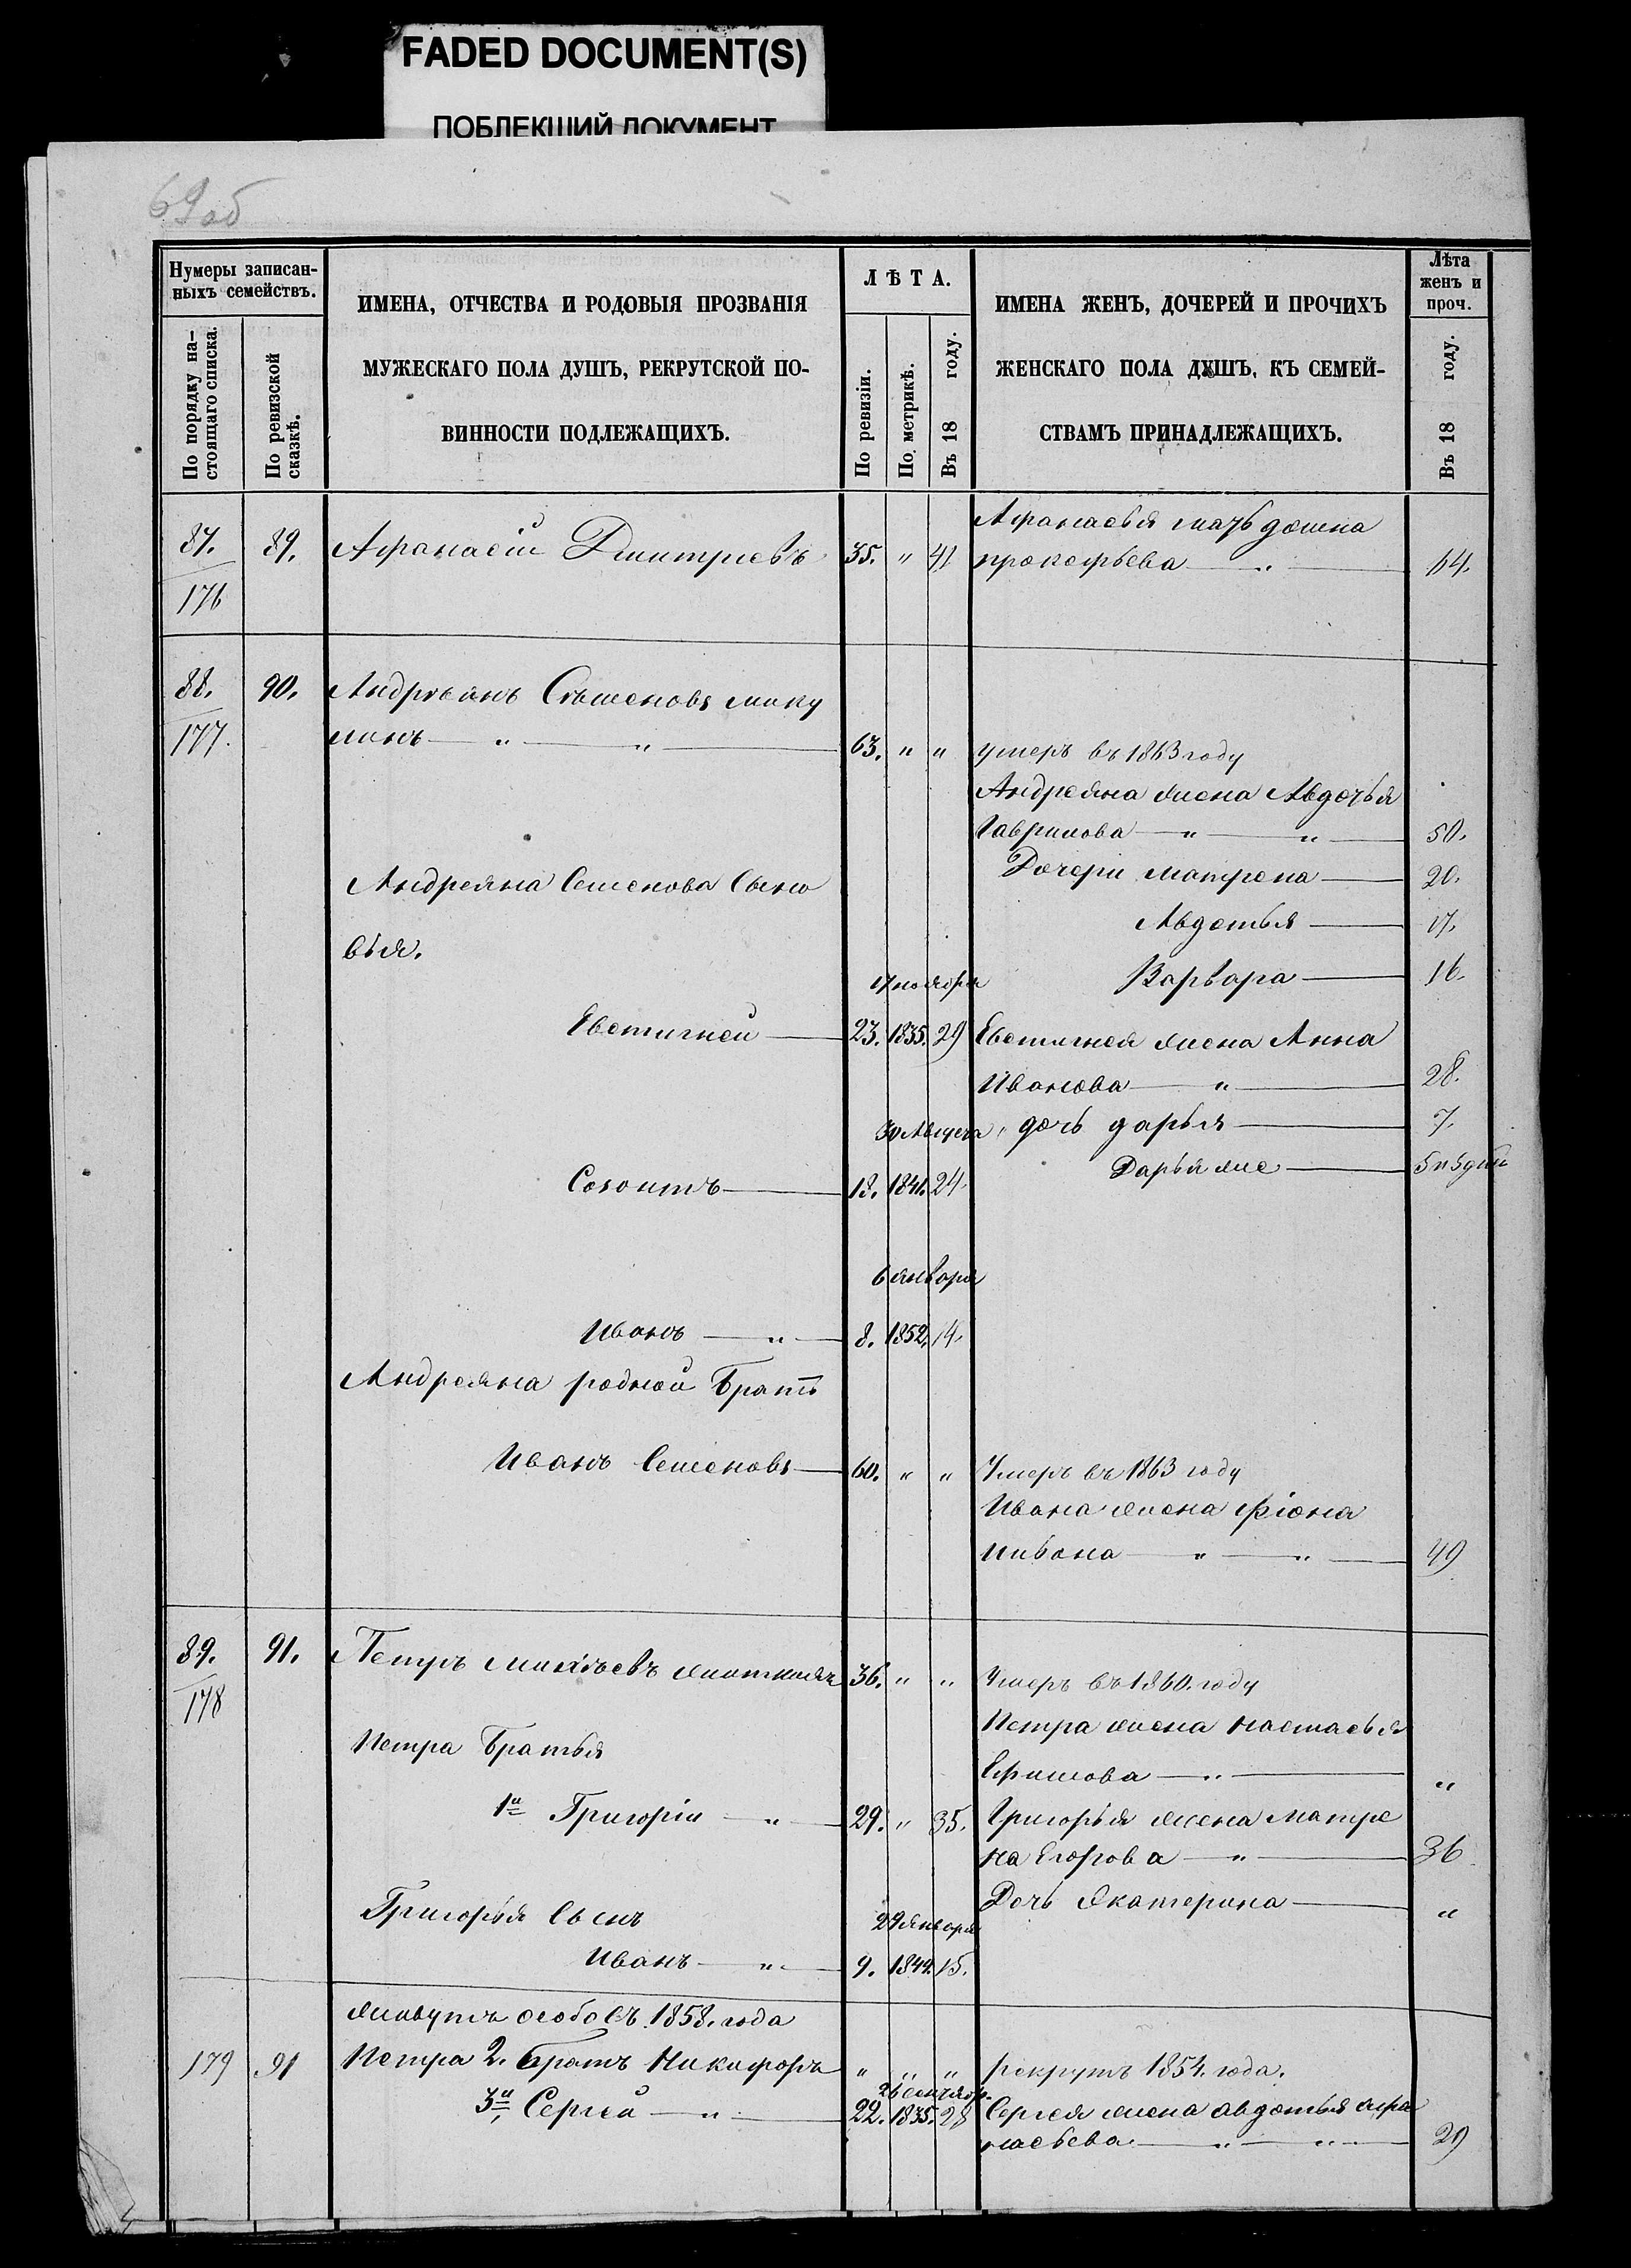 FADED DOCUMENT(S)
ПОБЛЕКШИЙ ДОКУМЕНТ
69об
Нумеры записан-
ныхъ семействъ.
По порядку на-
стоящаго списка.
По ревизской
сказкѣ.
ИМЕНА, ОТЧЕСТВА И РОДОВЫЯ ПРОЗВАНІЯ
МУЖЕСКАГО ПОЛА ДУШЪ, РЕКРУТСКОЙ ПО-
ВИННОСТИ ПОДЛЕЖАЩИХЪ.
ЛѢТА.
По ревизіи.
По метрикѣ.
Въ 18 году.
ИМЕНА ЖЕНЪ, ДОЧЕРЕЙ И ПРОЧИХЪ
ЖЕНСКАГО ПОЛА ДУШЪ, КЪ СЕМЕЙ-
СТВАМЪ ПРИНАДЛЕЖАЩИХЪ.
Лѣта
женъ и
проч.
Въ 18 году.
Афанасья мать домна
87. 89. Афанасій Дмитріевъ 35. " 41 прокофьева " 64.
176
88. 90. Андреянъ Сѣменовъ мику
177. линъ " " 63. " " умеръ въ 1863 году
Андреяна жена Авдотья
Гаврилова " " 50.
Дочери матрена 20.
Андреяна Семенова Сыно
Авдотья 17.
вья.
17 ноября Варвара 16.
Евстигней 23. 1835. 29 Евстигнея жена Анна
Иванова " 28.
30 Августа " дочь дарья 7.
Дарья же 5 и 5 дней
Созонтъ 18. 1841. 24.
6 января
Иванъ " 8. 1852. 14.
Андреяна родной Братъ
Иванъ Семеновъ 60. " " Умеръ въ 1863 году
Ивана жена Фіона
" " 49
89. 91. Петръ 36. " " Умеръ въ 1860. году
178
Петра жена настасья
Петра Братья
Ефимова " "
1й Григорій " 29. " 35. Григорья жена Матре
на Егорова " 36
Дочь Екатерина "
Григорья Сынъ 29 января
Иванъ " 9. 1849. 15.
живутъ особо съ 1858. года
179 91 Петра 2. братъ Никифоръ " " " рекрутъ 1854. года.
26 сентябр.
3й, Сергей " 22. 1835. 28 Сергея жена авдотья афа
насьева " " 29